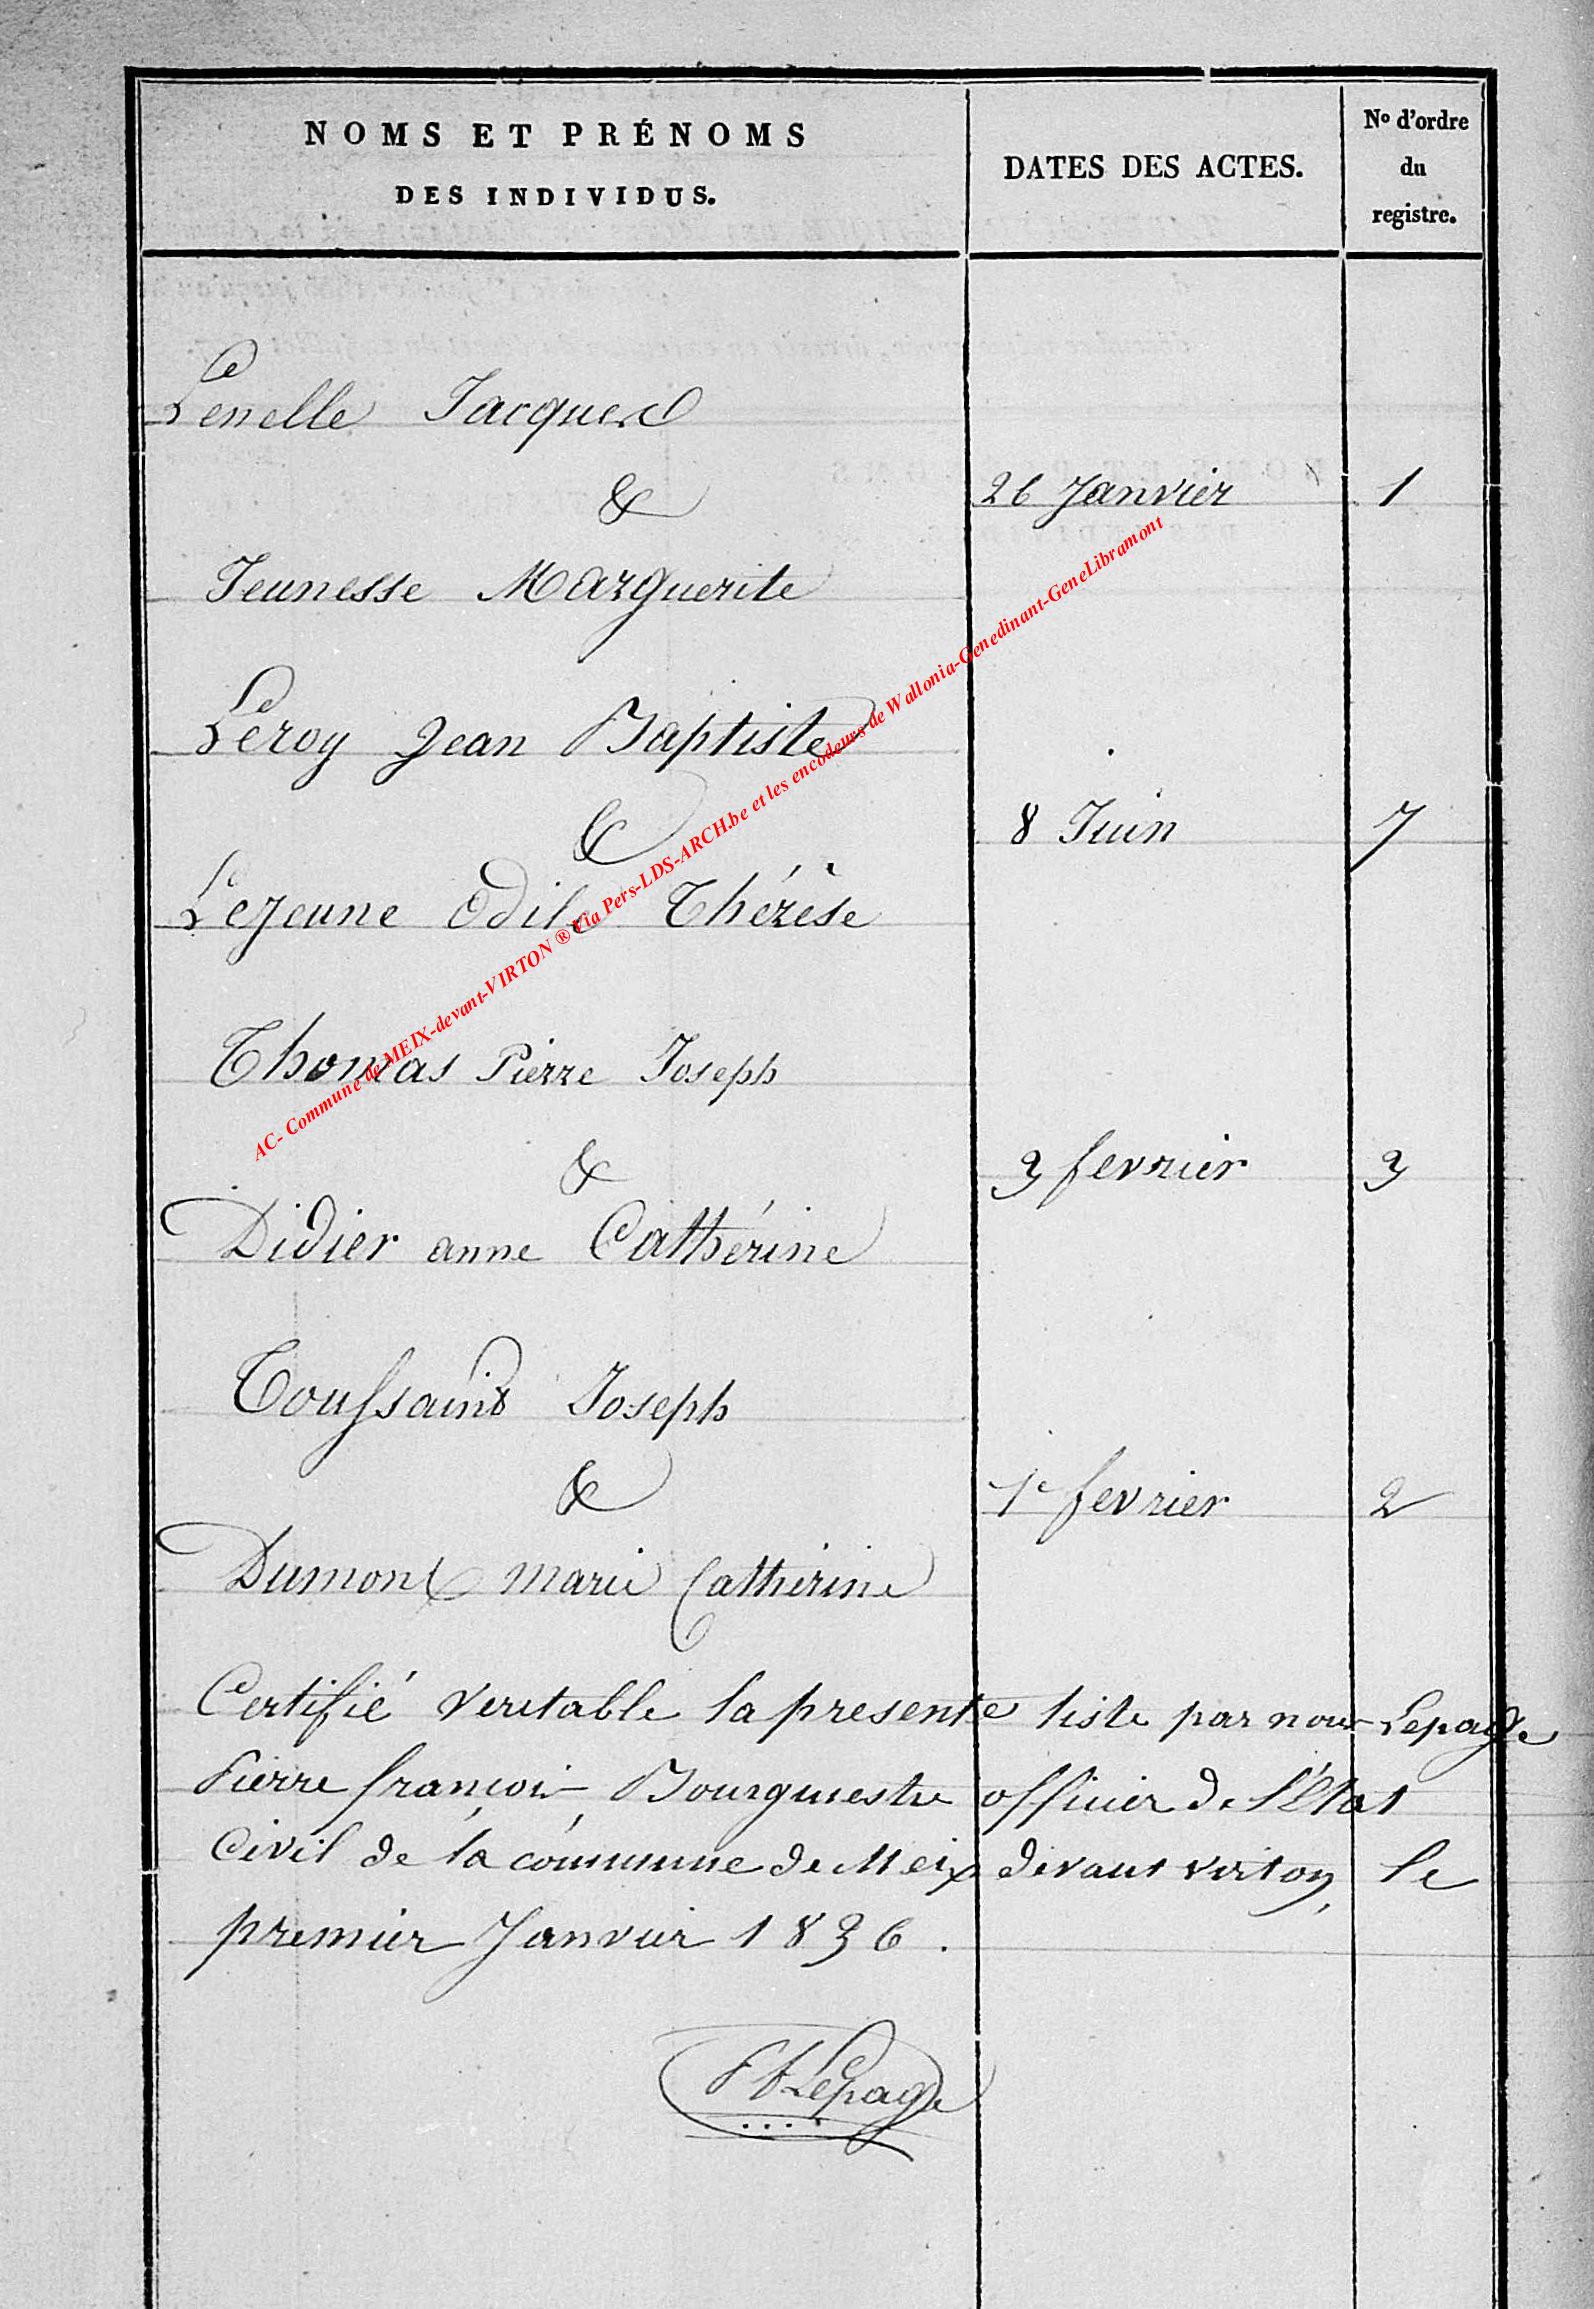 NOMS ET PRÉNOMS
DES INDIVIDUS.
DATES DES ACTES.
No d'ordre
du
registre.
Lenelle Jacques
&
26 Janvier 1
Jeunesse Marguerite
Leroy Jean Baptiste
&
8 Juin 7
Lejeune Odile Thérèse
Thomas Pierre Joseph
&
3 fevrier 3
Didier anne Cathérine
Toussaint Joseph
&
1e fevrier 2
Dumont marie Catherine
Certifié veritable la presente liste par nous Lepage
Pierre françois Bourgmestre officier de l'état
Civil de la commune de Meix devant virton, le
premier Janvier 1836.
Pf Lepage
AC- Commune de MEIX-devant-VIRTON ® Via Pers-LDS-ARCH.be et les encodeurs de Wallonia-Genedinant-GeneLibramont